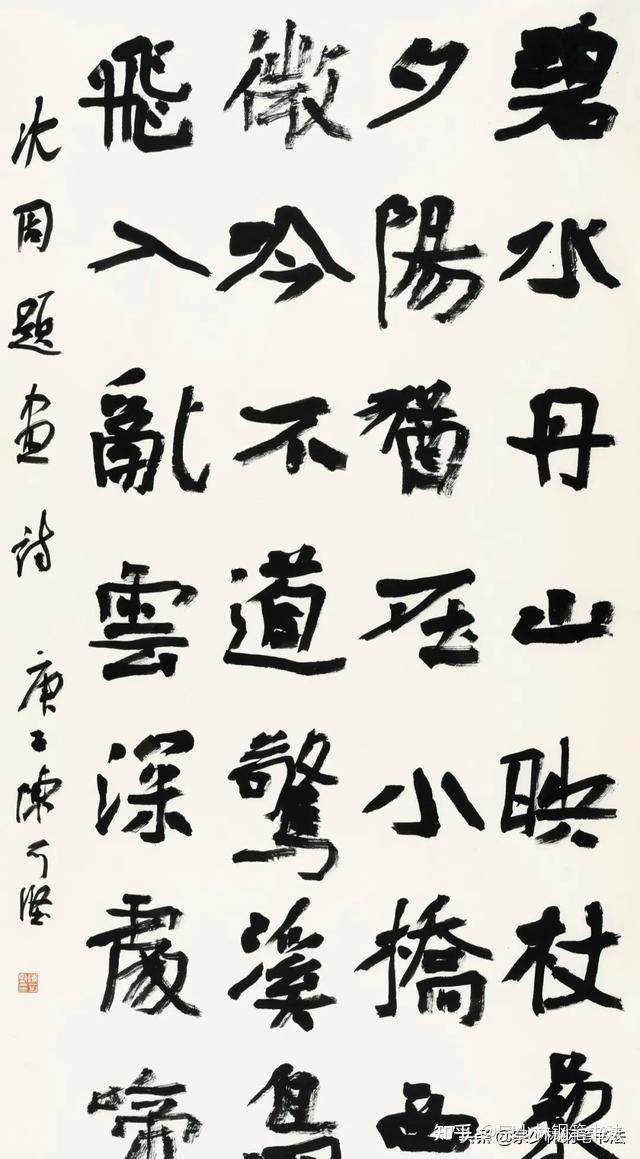 碧水丹山映杖藜
夕陽猶在小橋西
微吟不道驚溪鳥
飛入亂雲深處啼
沈周題畫詩 庚子陳
知乎
头条 @崇少林钢笔书法